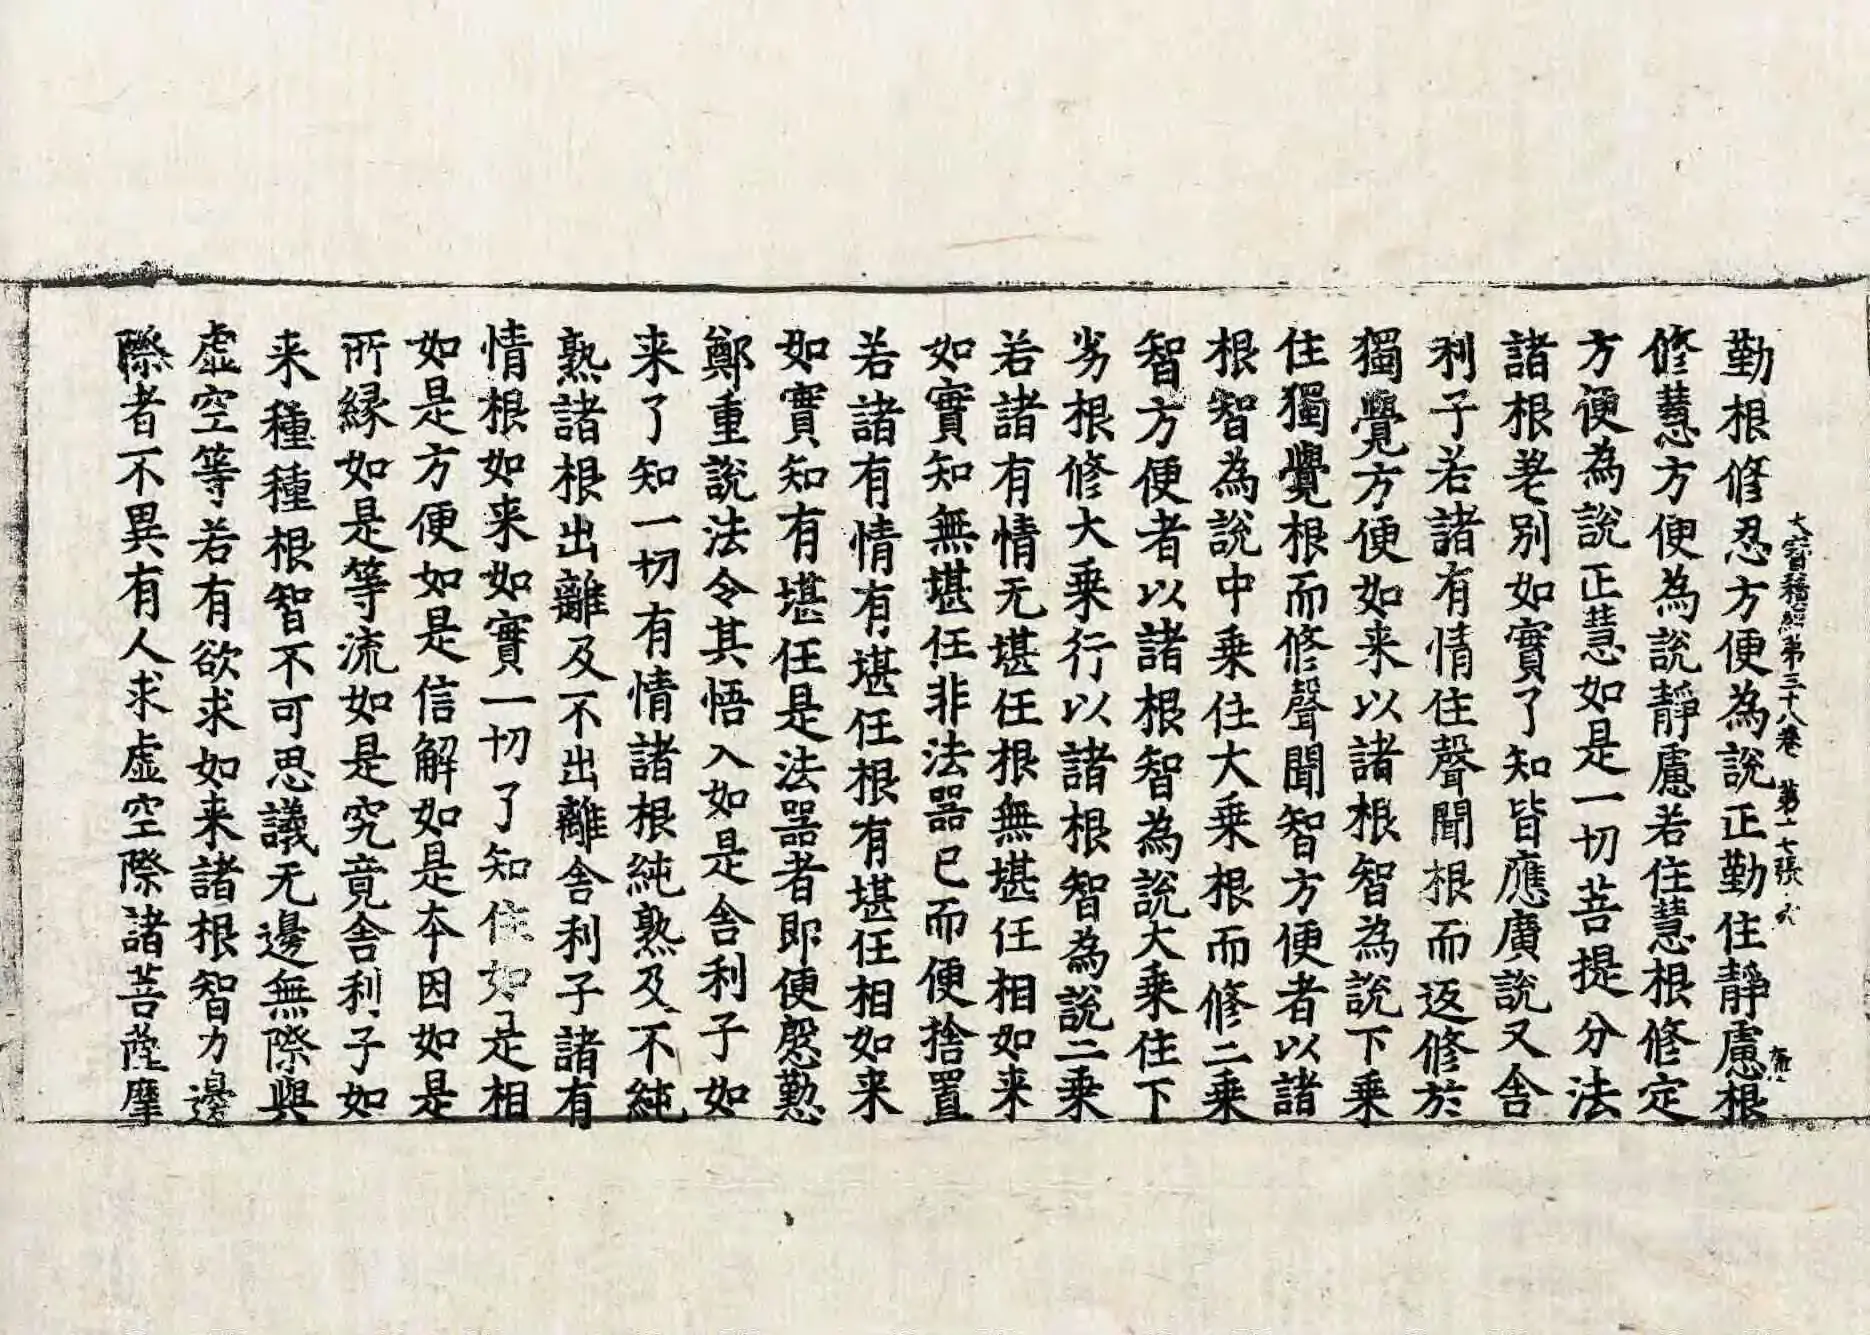 大寶積經第三十八卷 第十七張
勤根修忍方便為說正勤住靜慮根
修慧方便為說靜慮若住慧根修定
方便為說正慧如是一切菩提分法
諸根差別如實了知皆應廣說又舍
利子若諸有情住聲聞根而返修於
獨覺方便如来以諸根智為說下乗
住獨覺根而修聲聞智方便者以諸
根智為說中乗住大乗根而修二乗
智方便者以諸根智為說大乗住下
劣根修大乗行以諸根智為說二乗
若諸有情无堪任根無堪任相如来
如實知無堪任非法器已而便捨置
若諸有情有堪任根有堪任相如来
如實知有堪任是法器者即便慇懃
鄭重說法令其悟入如是舍利子如
来了知一切有情諸根純熟及不純
熟諸根出離及不出離舍利子諸有
情根如来如實一切了知住如是相
如是方便如是信解如是本因如是
所緣如是等流如是究竟舍利子如
来種種根智不可思議无邊無際與
虛空等若有欲求如来諸根智力邊
際者不異有人求虛空際諸菩薩摩